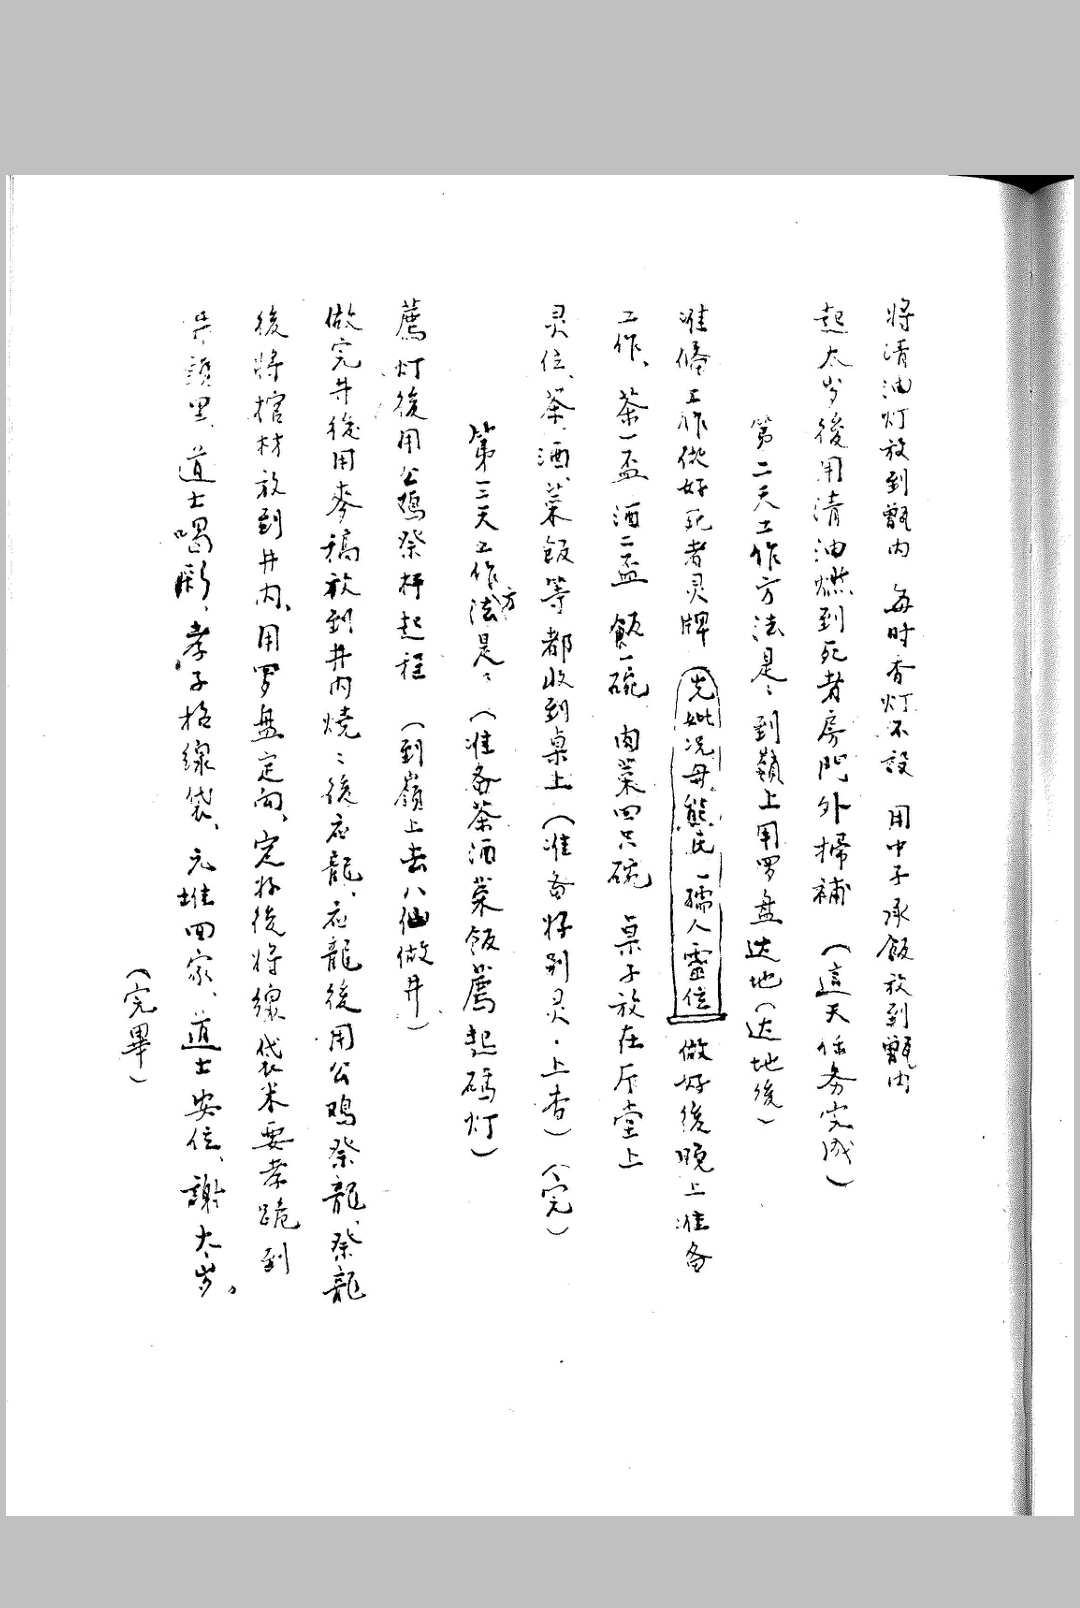 将清油灯放到甑内 每时香灯不設 用中子承飯放到甑内
起太岁後用清油燃到死者房門外掃補 (這天任务完成)
第二天工作方法是: 到嶺上用罗盘达地(达地後)
准俻工作做好死者灵牌 先妣况母熊氏一孺人靈位 做好後晚上准备
工作、茶一盃 酒二盃 飯一碗 肉菜四只碗 桌子放在厅堂上
灵位、茶、酒、菜飯等都收到桌上(准备好别灵·上香)(完)
第三天工作方法是: (准备茶酒菜飯薦起碼灯)
薦灯後用公鴞祭杆起程 (到嶺上去八仙做井)
做完井後用麥稿放到井内燒:後应龍、应龍後用公鸡祭龍、祭龍
後将棺材放到井内、用罗盘定向、定好後将線袋米要孝跪到
井頭里、道士喝彩、孝子格線袋、元堆四家、道士安位、謝太岁。
(完畢)